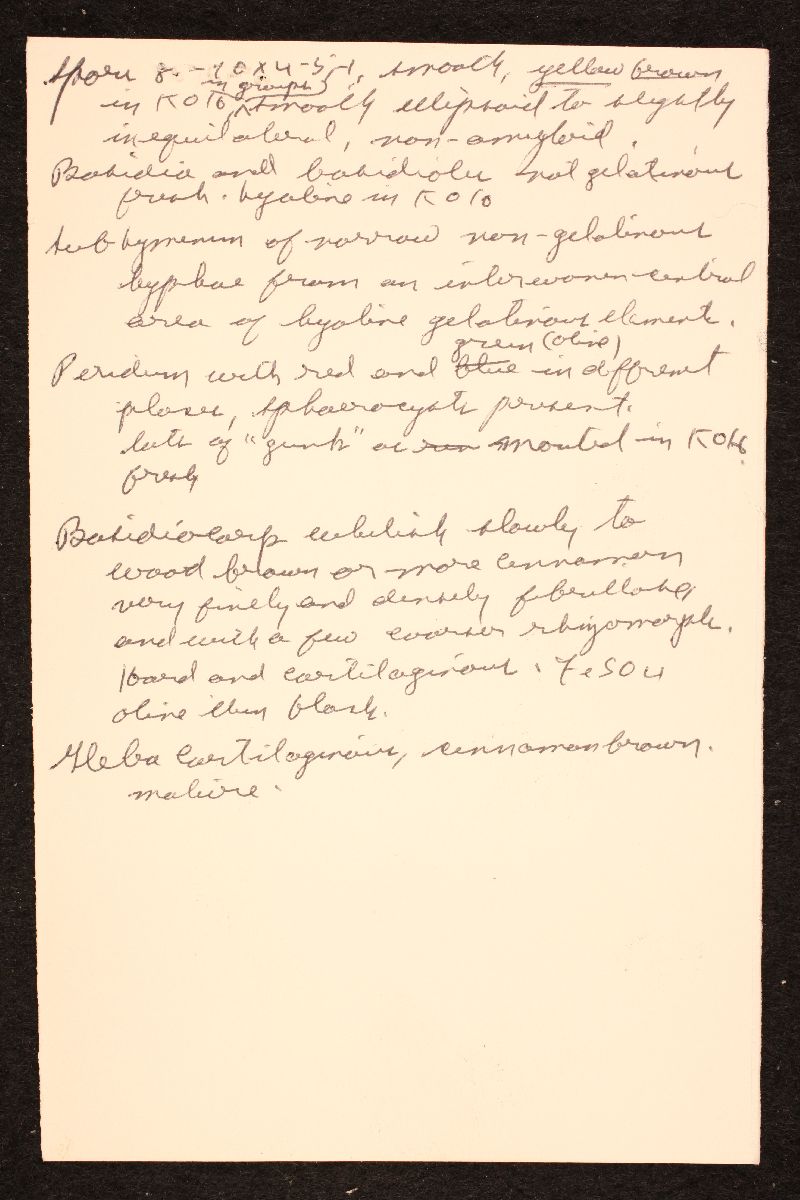 Spores 8-10 x 4-5, smooth, yellow brown
in groups
in KOH, smooth ellipsoid to slightly
inequilateral, non-amyloid.
Basidia and basidioles not gelatinous
fresh. hyaline in KOH
Subhymenium of narrow non-gelatinous
hyphae from an interwoven central
area of hyaline gelatinous elements.
green (olive)
Peridium with red and blue in different
places, sphaerocysts present.
lots of "gunk" as mounted in KOH
fresh
Basidiocarp whitish slowly to
wood brown or more cinnamon
very finely and densely fibrillose
and with a few coarser rhizomorphs.
Hard and cartilaginous. FeSO4
olive then black.
Gleba cartilaginous, cinnamon brown.
mature.